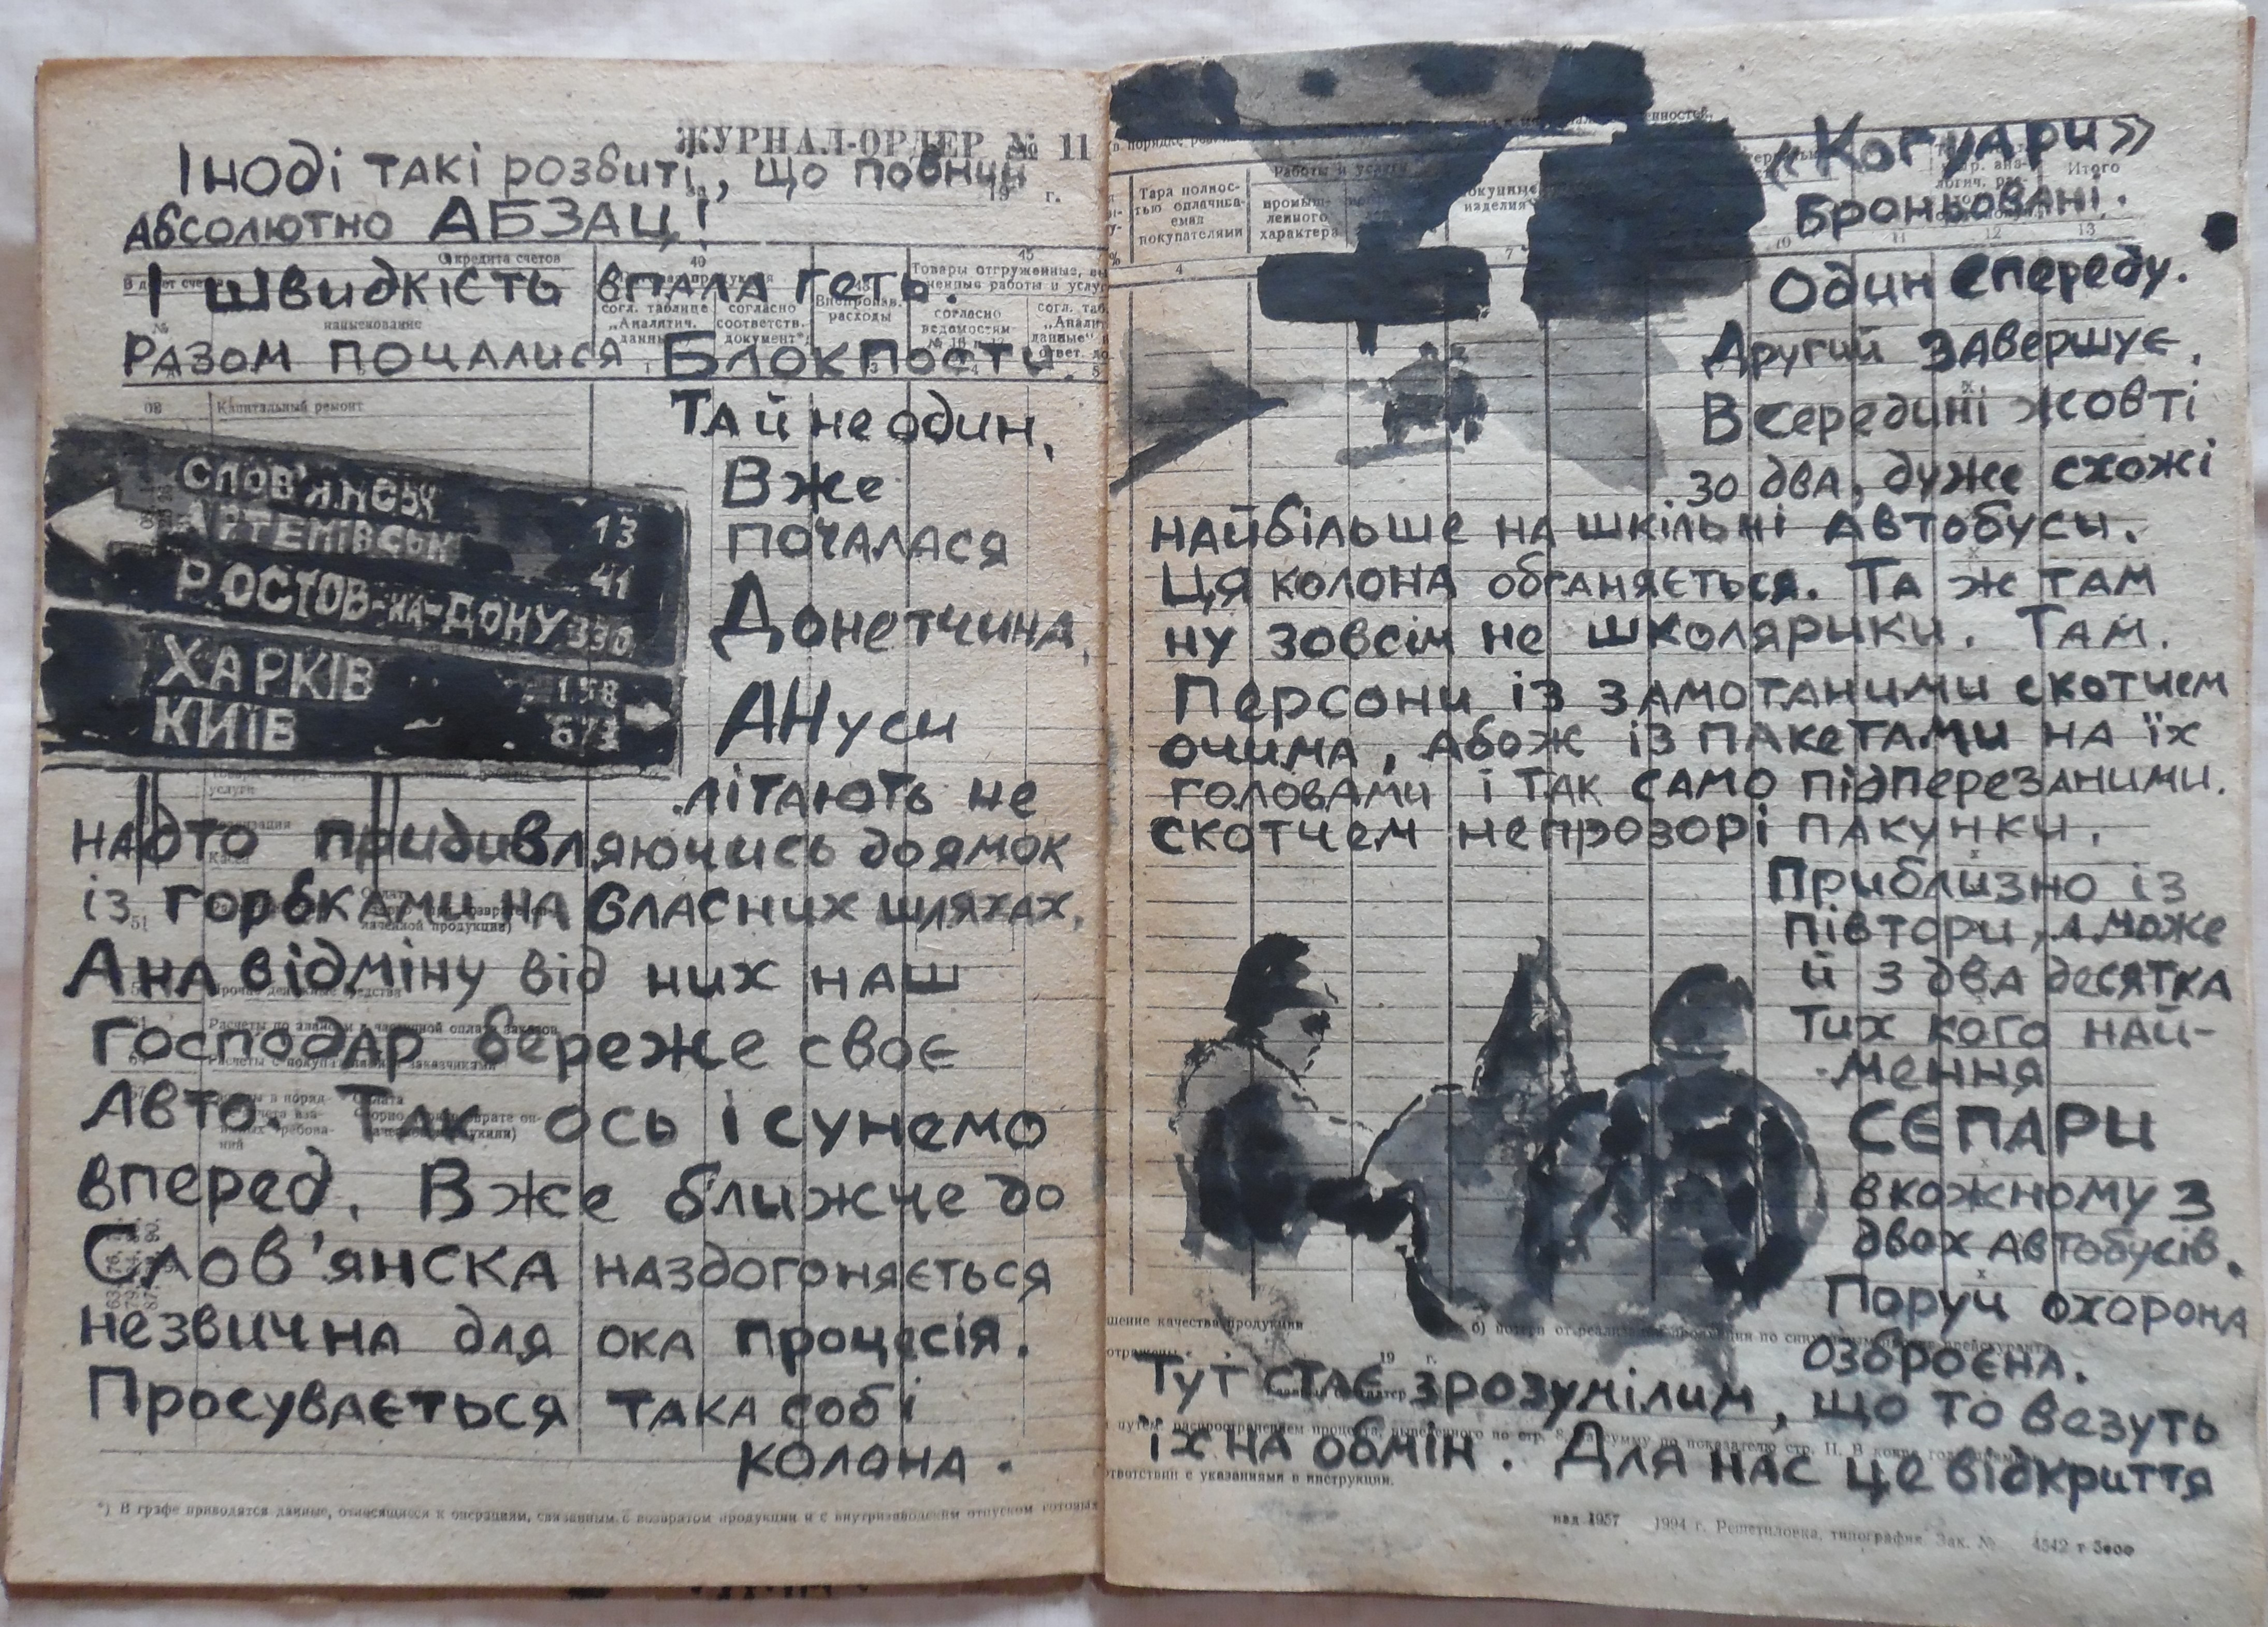 ЖУРНАЛ-ОРДЕР № 11
Іноді такі розбиті, що повний
абсолютно АБЗАЦ!
І швидкість впала геть.
Разом почалися Блокпости.
Та й не один.
Вже
почалася
Донетчина.
СЛОВ'ЯНСЬК 13
АРТЕМІВСЬК 41
РОСТОВ-НА-ДОНУ 330
ХАРКІВ
КИЇВ
АНуси
літають не
надто придивляючись до ямок
із горбками на власних шляхах.
А на відміну від них наш
господар береже своє
авто. Так ось і сунемо
вперед. Вже ближче до
Слов'янска наздогоняється
незвична для ока процесія.
Просувається така собі
колона.
*) В графе приводятся данные, относящиеся к операциям, связанным с возвратом продукции и с внутризаводским отпуском готовых
«Когуари»
Броньовані.
Один спереду.
Другий завершує.
Всередині жовті
зо два, дуже схожі
найбільше на шкільні автобуси.
Ця колона обганяється. Та ж там
ну зовсім не школярики. Там.
Персони із замотаними скотчем
очима, абож із пакетами на їх
головами і так само підперезаними.
скотчем непрозорі пакунки.
Приблизно із
півтори, а може
й з два десятка
тих кого най-
мення
СЄПАРИ
в кожному з
двох автобусів.
Поруч охорона
озброєна.
Тут стає зрозумілим, що то везуть
їх на обмін. Для нас це відкриття
1994 г. Решетиловка, типография Зак. № 4542 т 5000